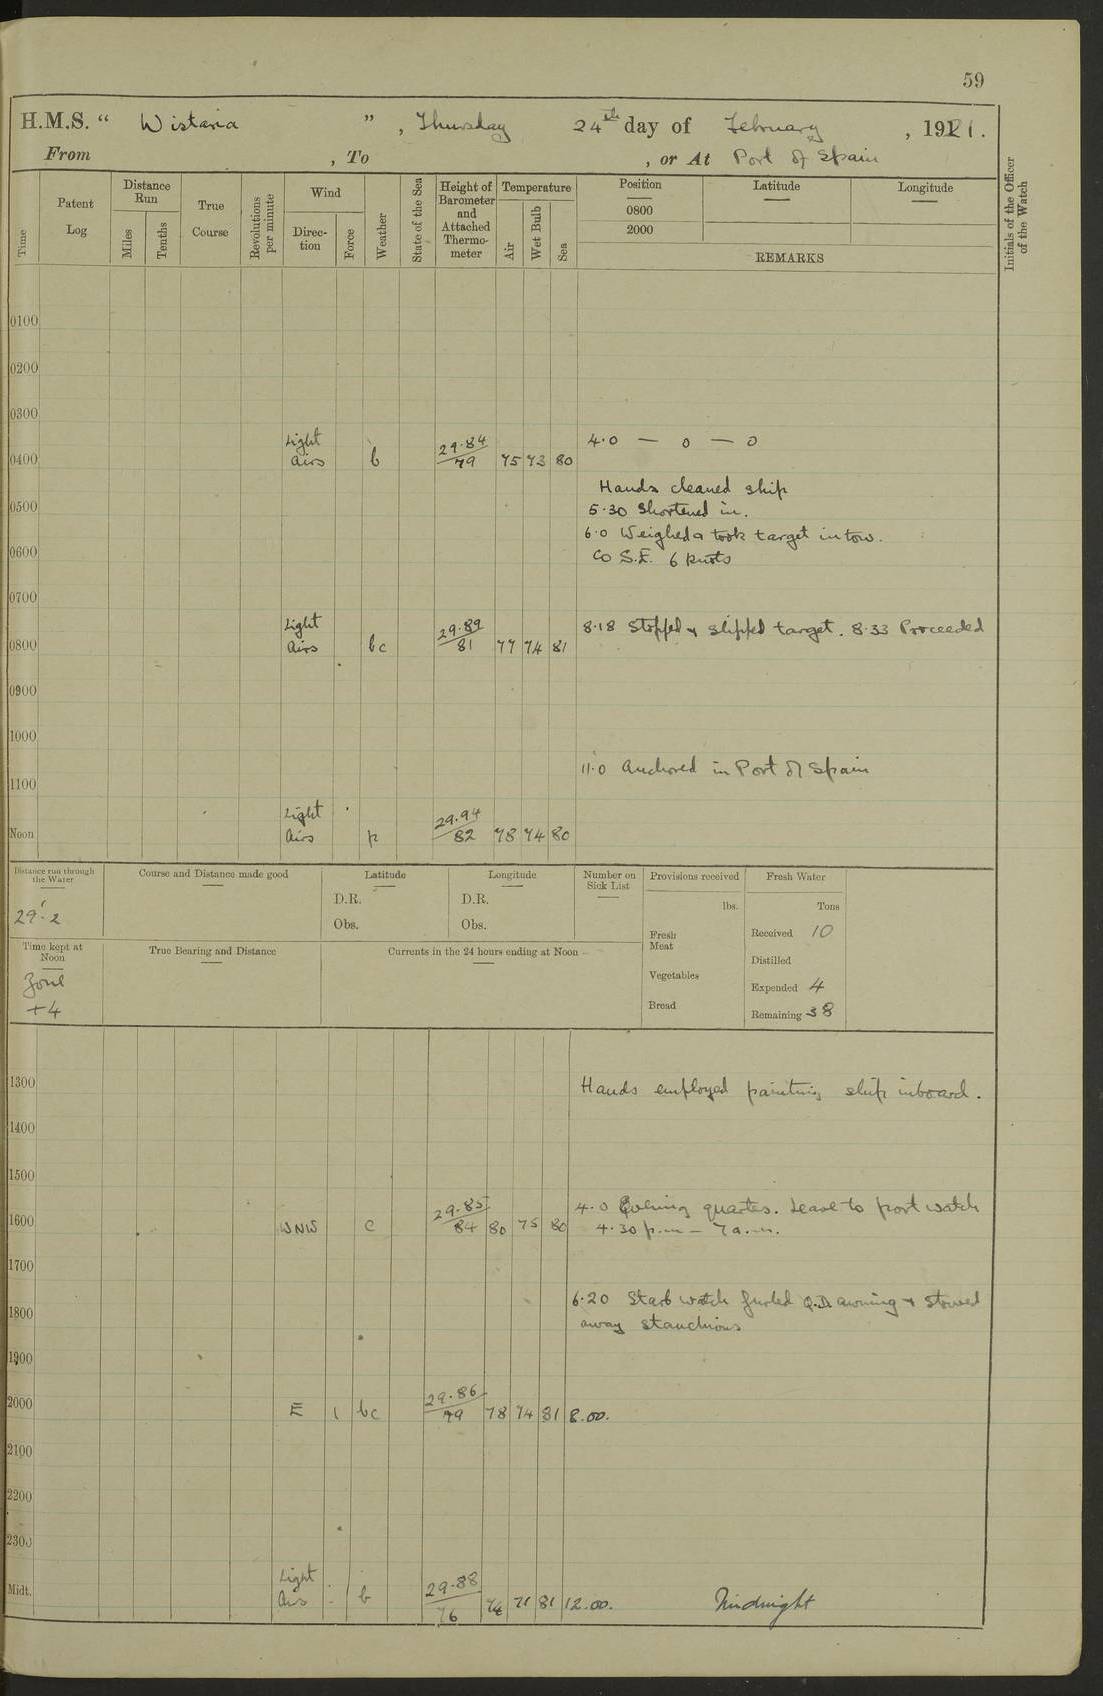 59
H.M.S. “ Wistaria ” , Thursday 24th day of February , 1921.
From , To , or At Port of Spain
Time
Patent Log
Distance Run
Miles
Tenths
True Course
Revolutions per minute
Wind
Direction
Force
Weather
State of the Sea
Height of Barometer and Attached Thermometer
Temperature
Air
Wet Bulb
Sea
Position
0800
2000
Latitude
Longitude
REMARKS
Initials of the Officer of the Watch
0100
0200
0300
Light 29.84 4.0 — 0 — 0
0400 Airs b 79 75 73 80
Hands cleaned ship
0500 5.30 Shortened in.
6.0 Weighed & took target in tow.
0600 Co S.E. 6 knots
0700
Light 29.89 8.18 Stopped & slipped target. 8.33 Proceeded
0800 Airs bc 81 77 74 81
0900
1000
11.0 Anchored in Port of Spain
1100
Light 29.94
Noon Airs p 82 78 74 80
Distance run through the Water
29'.2
Course and Distance made good
Latitude
D.R.
Obs.
Longitude
D.R.
Obs.
Number on Sick List
Provisions received
lbs.
Fresh Meat
Vegetables
Bread
Fresh Water
Tons
Received 10
Distilled
Expended 4
Remaining 38
Time kept at Noon
Zone
+4
True Bearing and Distance
Currents in the 24 hours ending at Noon
1300 Hands employed painting ship inboard.
1400
1500
29.85 4.0 Evening quarters. Leave to port watch
1600 WNW c 84 80 75 80 4.30 p.m – 7 a.m.
1700
6.20 Starb watch furled Q.D. awning & stowed
1800 away stanchions
1900
29.86
2000 E 1 bc 79 78 74 81 8.00.
2100
2200
2300
Light 29.88
Midt. Airs b 76 74 71 81 12.00. Midnight